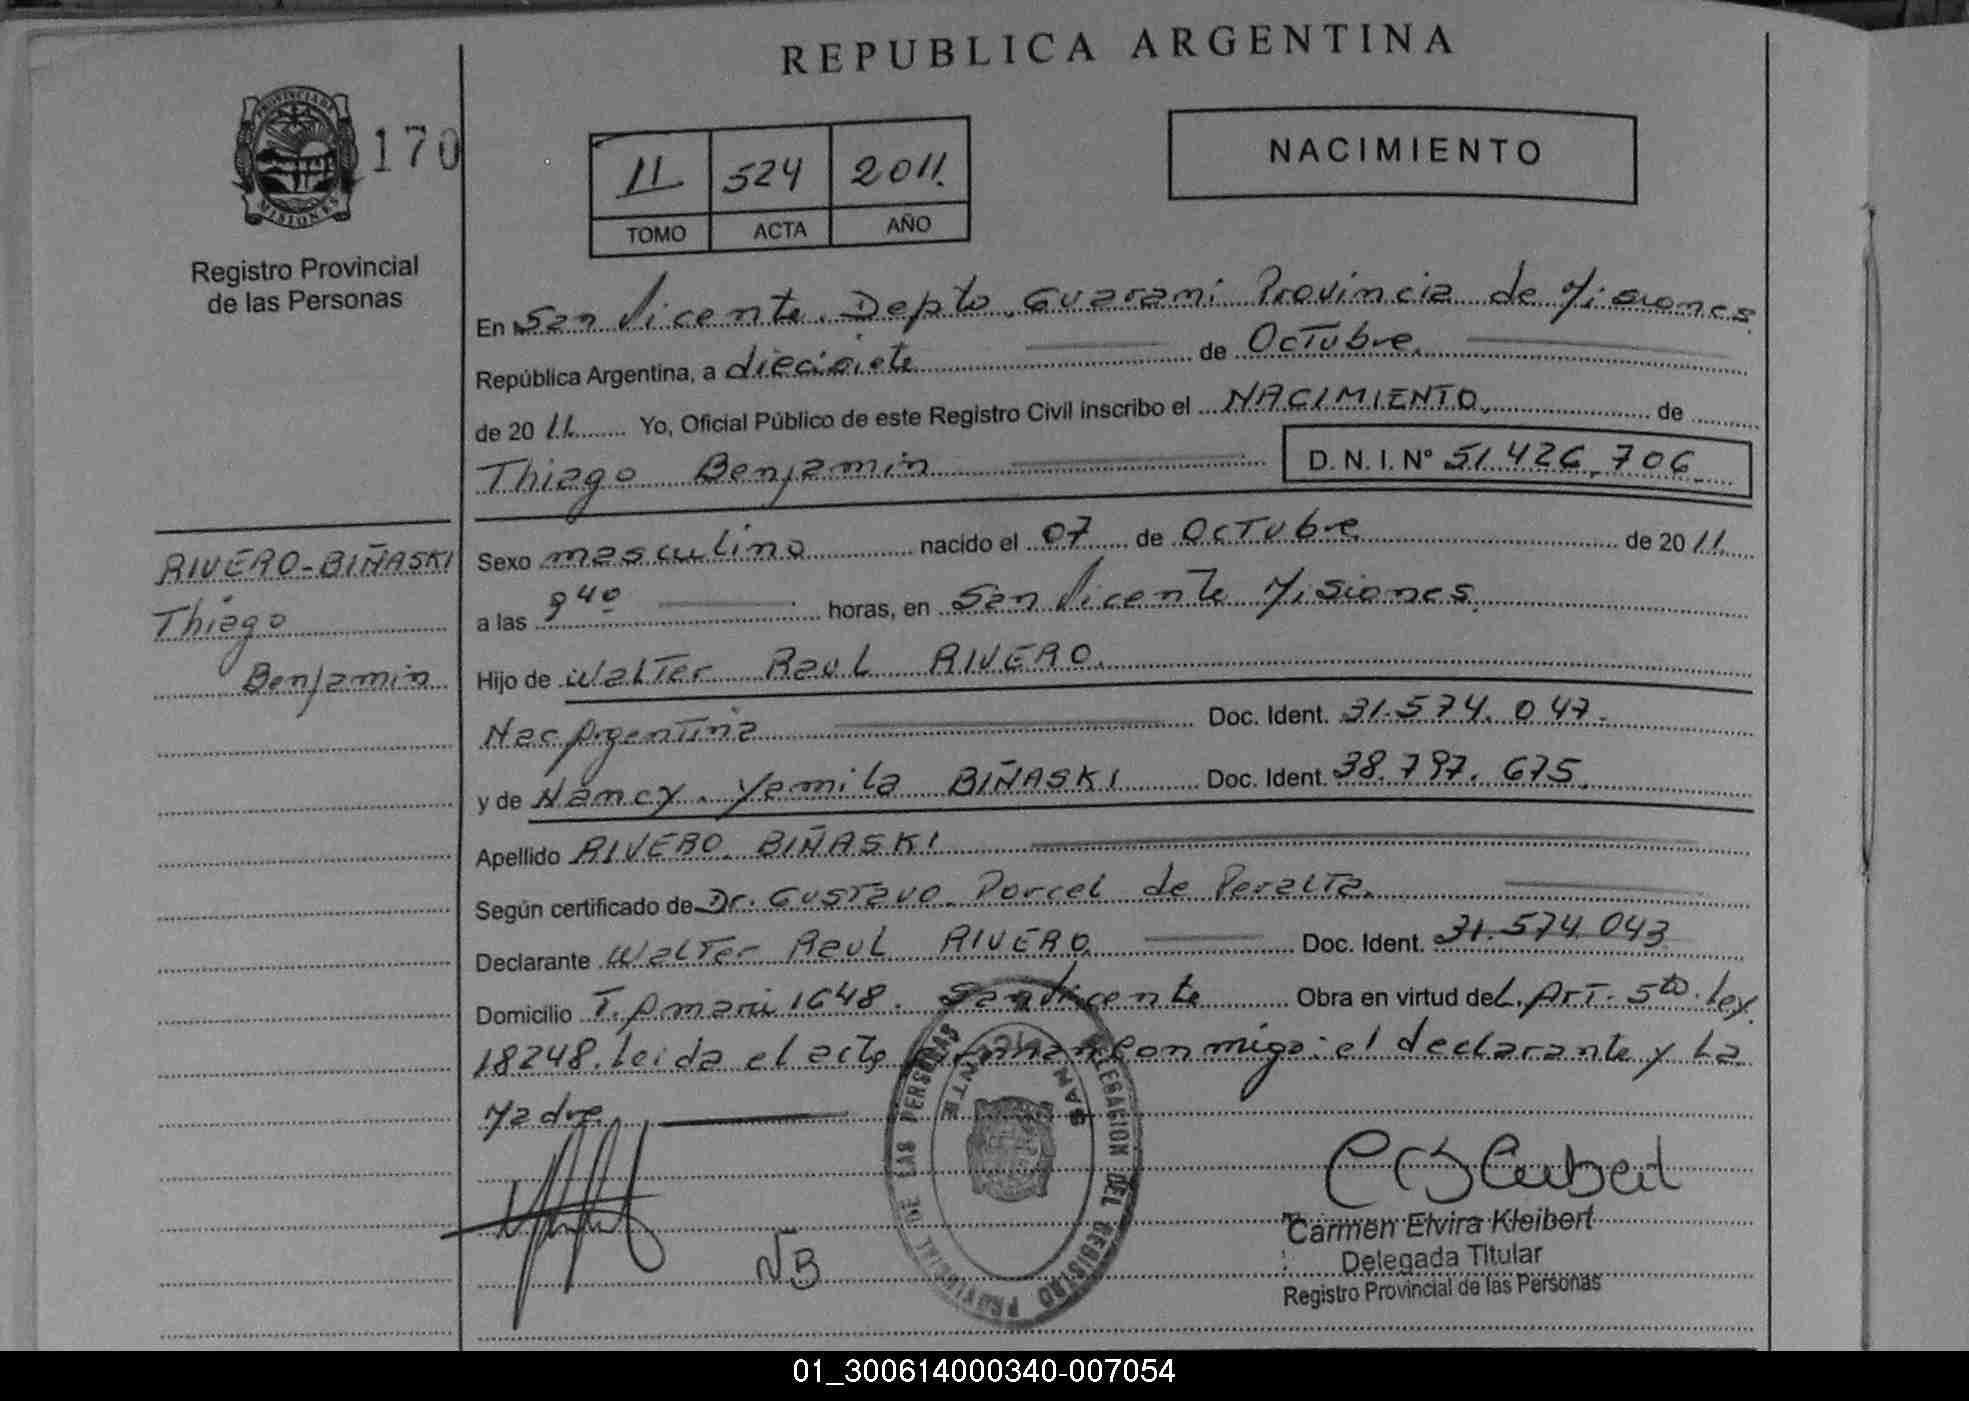 REPUBLICA ARGENTINA
PROVINCIA DE MISIONES
170
Registro Provincial
de las Personas
II 524 2011.
TOMO ACTA AÑO
NACIMIENTO
En San Vicente. Depto. Guarani Provincia de Misiones.
República Argentina, a diecisiete de Octubre.
de 20 11 Yo, Oficial Público de este Registro Civil inscribo el NACIMIENTO. de
Thiago Benjamin D. N. I. Nº 51.426.706
RIVERO-BIÑASKI
Thiago
Benjamin
Sexo masculino nacido el 07 de Octubre de 20 11.
a las 9 40 horas, en San Vicente Misiones.
Hijo de Walter Raul RIVERO.
Nac Argentina Doc. Ident. 31.574.047.
y de Nancy. Yamila BIÑASKI Doc. Ident. 38.797.675.
Apellido RIVERO. BIÑASKI
Según certificado de Dr. Gustavo. Porcel de Peralta.
Declarante Walter Raul RIVERO Doc. Ident. 31.574.043
Domicilio T. Amari 1648. San Vicente Obra en virtud del. Art. 5to. ley
18248. leida el acto firman conmigo: el declarante y la
Madre.
DELEGACION DEL REGISTRO PROVINCIAL DE LAS PERSONAS
SAN VICENTE
NB
Carmen Elvira Kleibert
Delegada Titular
Registro Provincial de las Personas
01_300614000340-007054